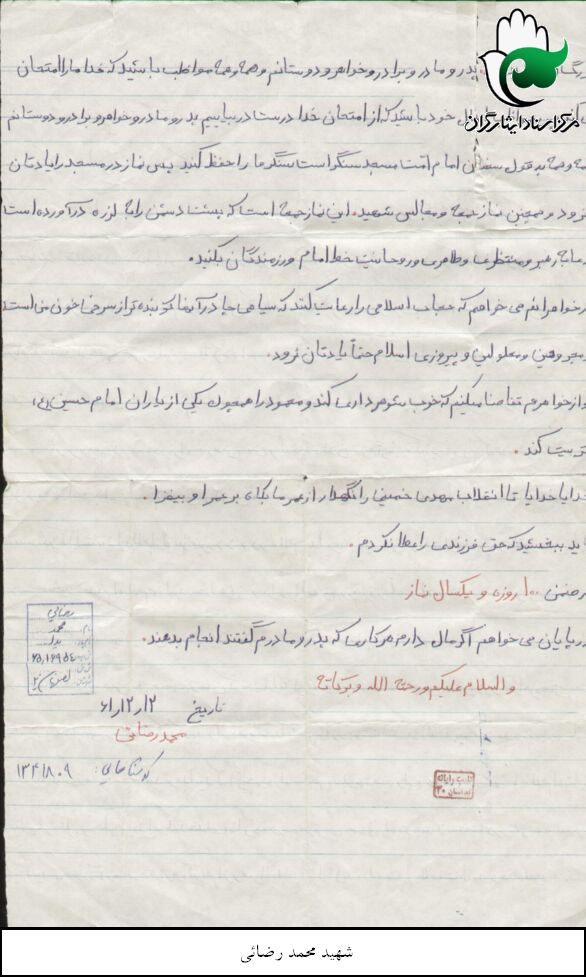 مرکز اسناد ایثارگران
پدر و مادر و برادر و خواهر و دوستانم و همه و همه مواظب باشید که خدا ما را امتحان
خود باشید که از امتحان خدا درست در بیاییم پدر و مادر و خواهر و برادر و دوستانم
همه و همه به قول سخنان امام امت مسجد سنگر است سنگر ما را حفظ کنید پس نماز در مسجد را یادتان
نرود و همچنین نماز جمعه و مجالس شهید. این نماز جمعه است که پشت دشمن را به لرزه در آورده است
دعا به رهبر و منتظری و طاهری و روحانیت خط امام و رزمندگان بکنید.
از خواهرانم می خواهم که حجاب اسلامی را رعایت کنند که سیاهی چادر آنها کوبنده تر از سرخی خون من است
مجروحین و معلولین و پیروزی اسلام حتماً یادتان نرود.
و از خواهرم تقاضا میکنم که خوب شوهرداری کند و محمود را همچون یکی از یاران امام حسین (ع)
تربیت کند.
خدایا خدایا تا انقلاب مهدی خمینی را نگهدار از عمر ما بکاه بر عمر او بیفزا.
ببخشید که حق فرزندی را عطا نکردم.
درضمن ۱۰۰ روزه و یکسال نماز
در پایان می خواهم اگر مال دارم هر کاری که پدر و مادرم گفتند انجام بدهند.
والسلام علیکم و رحمة الله و برکاته
رضایی
محمد
تاریخ ۶۱/۱۲/۲
محمد رضائی
کد شناسایی: ۱۳۴۱۸۰۹
شهید محمد رضائی